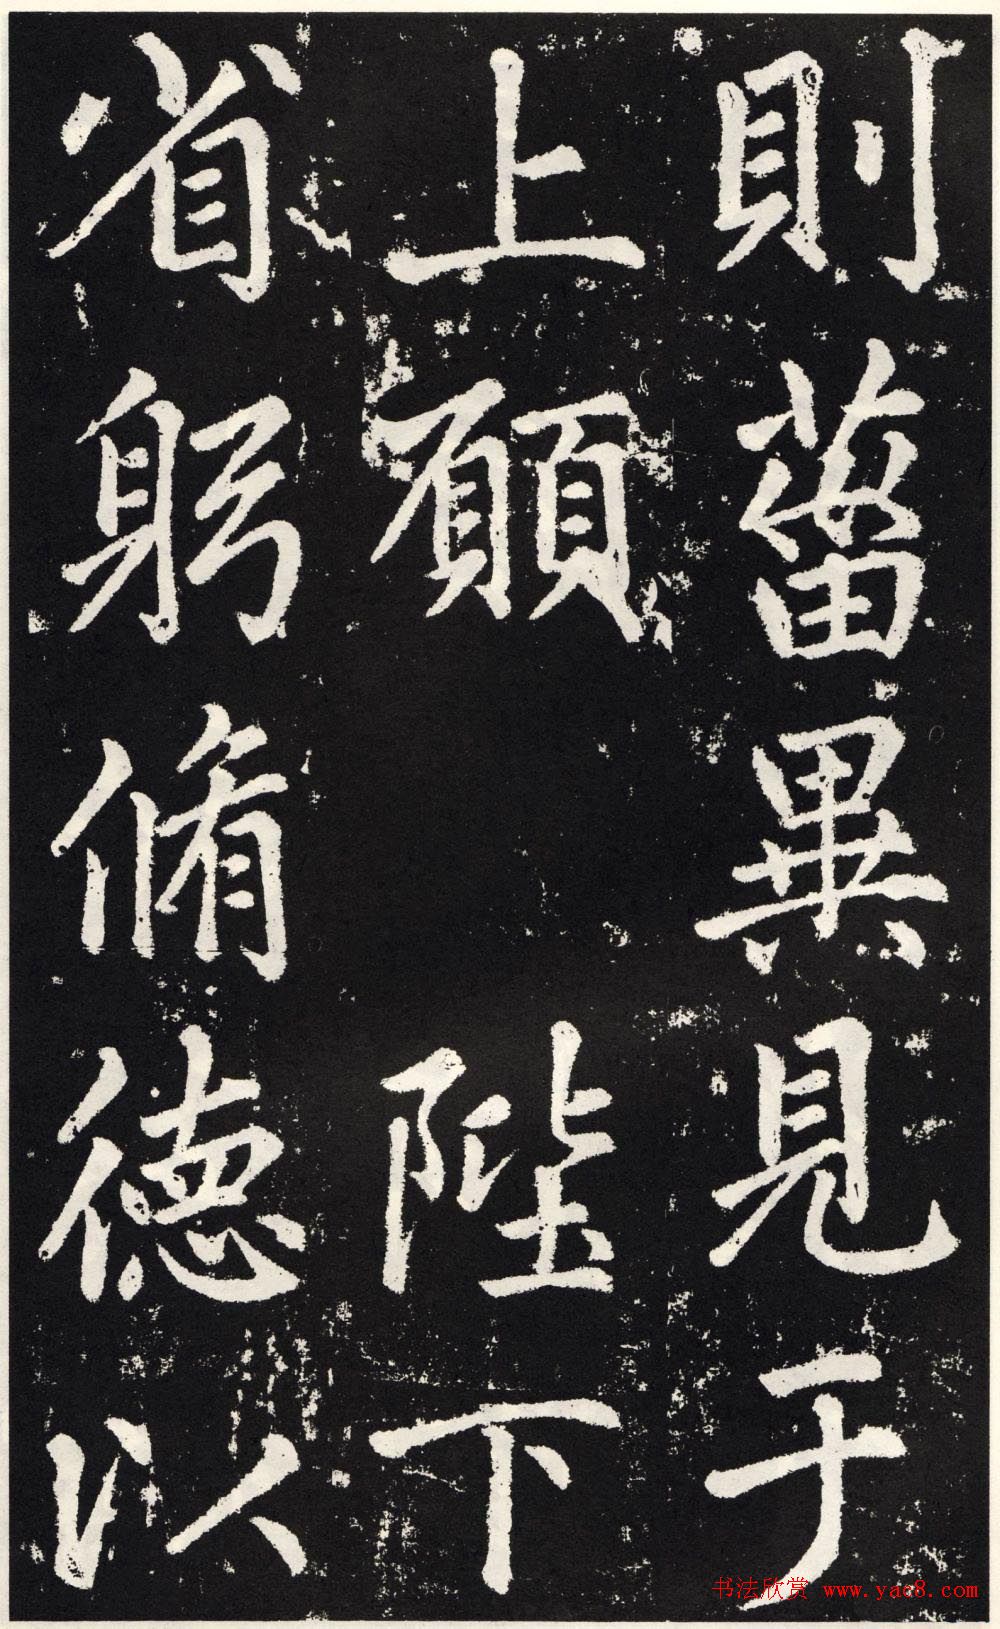 則菑異見于
上願 陛下
省躬脩德以
书法欣赏 www.yac8.com